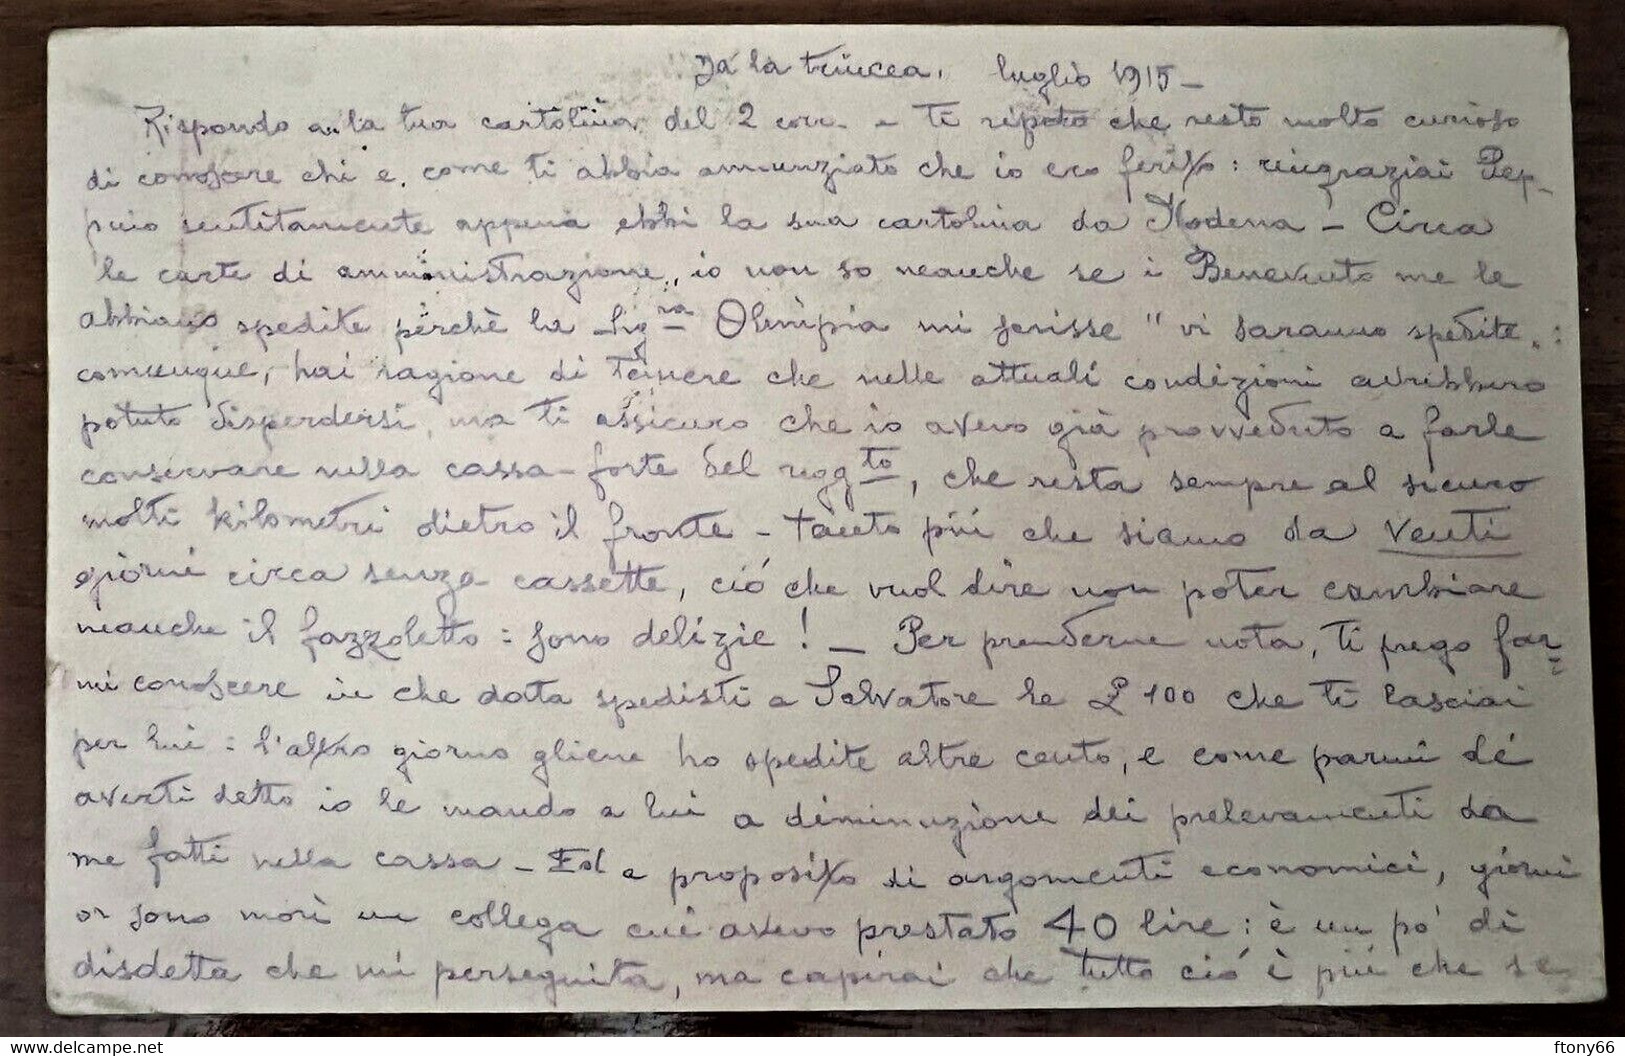 Da la trincea, luglio 1915 -
Rispondo a la tua cartolina del 2 corr. - e ti ripeto che resto molto curioso
di conoscere chi e come ti abbia annunziato che io ero ferito: ringraziai Pep-
pino sentitamente appena ebbi la sua cartolina da Modena - Circa
le carte di amministrazione, io non so neanche se i Benevento me le
abbiano spedite perchè la Sig.ra Olimpia mi scrisse "vi saranno spedite„:
comunque, hai ragione di temere che nelle attuali condizioni avrebbero
potuto disperdersi, ma ti assicuro che io avevo già provveduto a farle
conservare nella cassa-forte del reggto, che resta sempre al sicuro
molti kilometri dietro il fronte - tanto più che siamo da venti
giorni circa senza cassette, ciò che vuol dire non poter cambiare
neanche il fazzoletto: sono delizie! - Per prenderne nota, ti prego far-
mi conoscere in che data spedisti a Salvatore le £ 100 che ti lasciai
per lui: l'altro giorno gliene ho spedite altre cento, e come parmi dé
averti detto io le mando a lui a diminuzione dei prelevamenti da
me fatti nella cassa - Ed a proposito di argomenti economici, giorni
or sono morì un collega cui avevo prestato 40 lire: è un po' di
disdetta che mi perseguita, ma capirai che tutto ciò è più che se
delcampe.net
ftony66